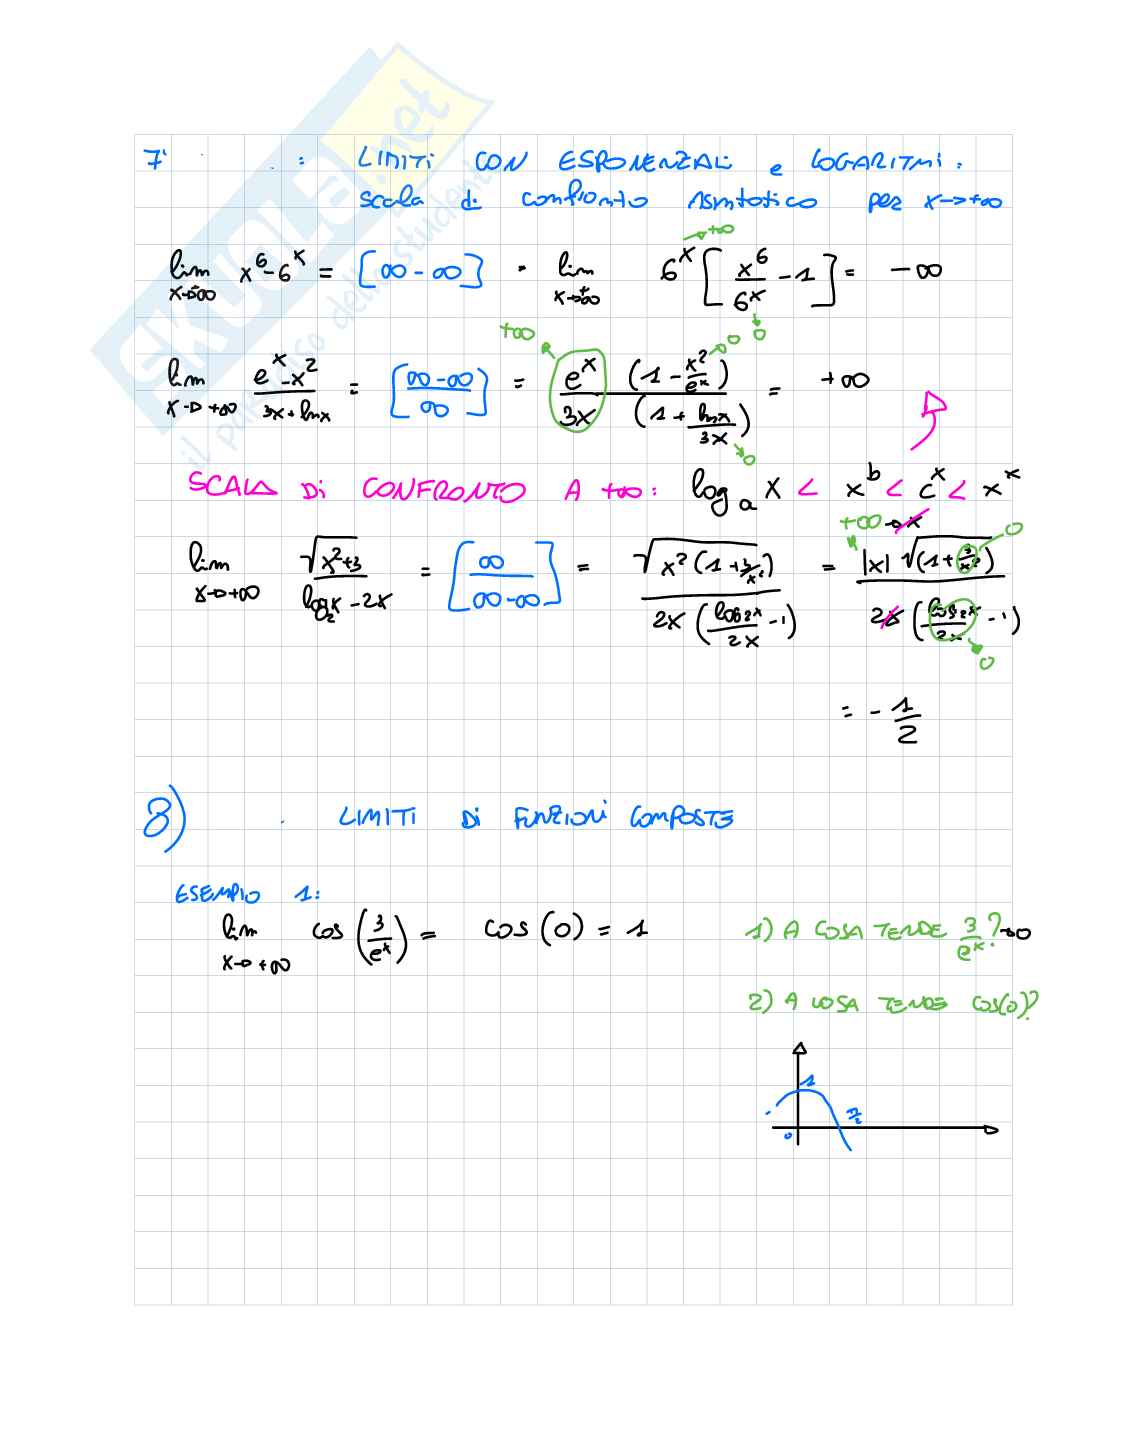 SKUOLA.net
il paradiso dello studente
7 : LIMITI CON ESPONENZALI e LOGARITMI:
scala di confronto Asintotico per x→+∞
lim x→+∞ x⁶-6ˣ = [∞-∞] · lim x→+∞ 6ˣ [x⁶/6ˣ - 1] = -∞
→+∞
→0
lim x→+∞ (eˣ-x²)/(3x+lnx) = [(∞-∞)/∞] = eˣ/3x (1-x²/eˣ)/(1+lnx/3x) = +∞
+∞
→0
→0
SCALA Di CONFRONTO A +∞: logₐ x < xᵇ < cˣ < xˣ
lim x→+∞ √(x²+3)/(log₂x-2x) = [∞/(∞-∞)] = √(x²(1+3/x²))/(2x(log₂x/2x -1)) = |x|√(1+3/x²)/(2x(log₂x/2x -1))
+∞ → x
0
→0
= -1/2
8) LIMITI Di FUNZIONI COMPOSTE
ESEMPIO 1:
lim x→+∞ cos(3/eˣ) = cos(0) = 1
1) A COSA TENDE 3/eˣ? →0
2) A COSA TENDE COS(0)?
1
0
π/2